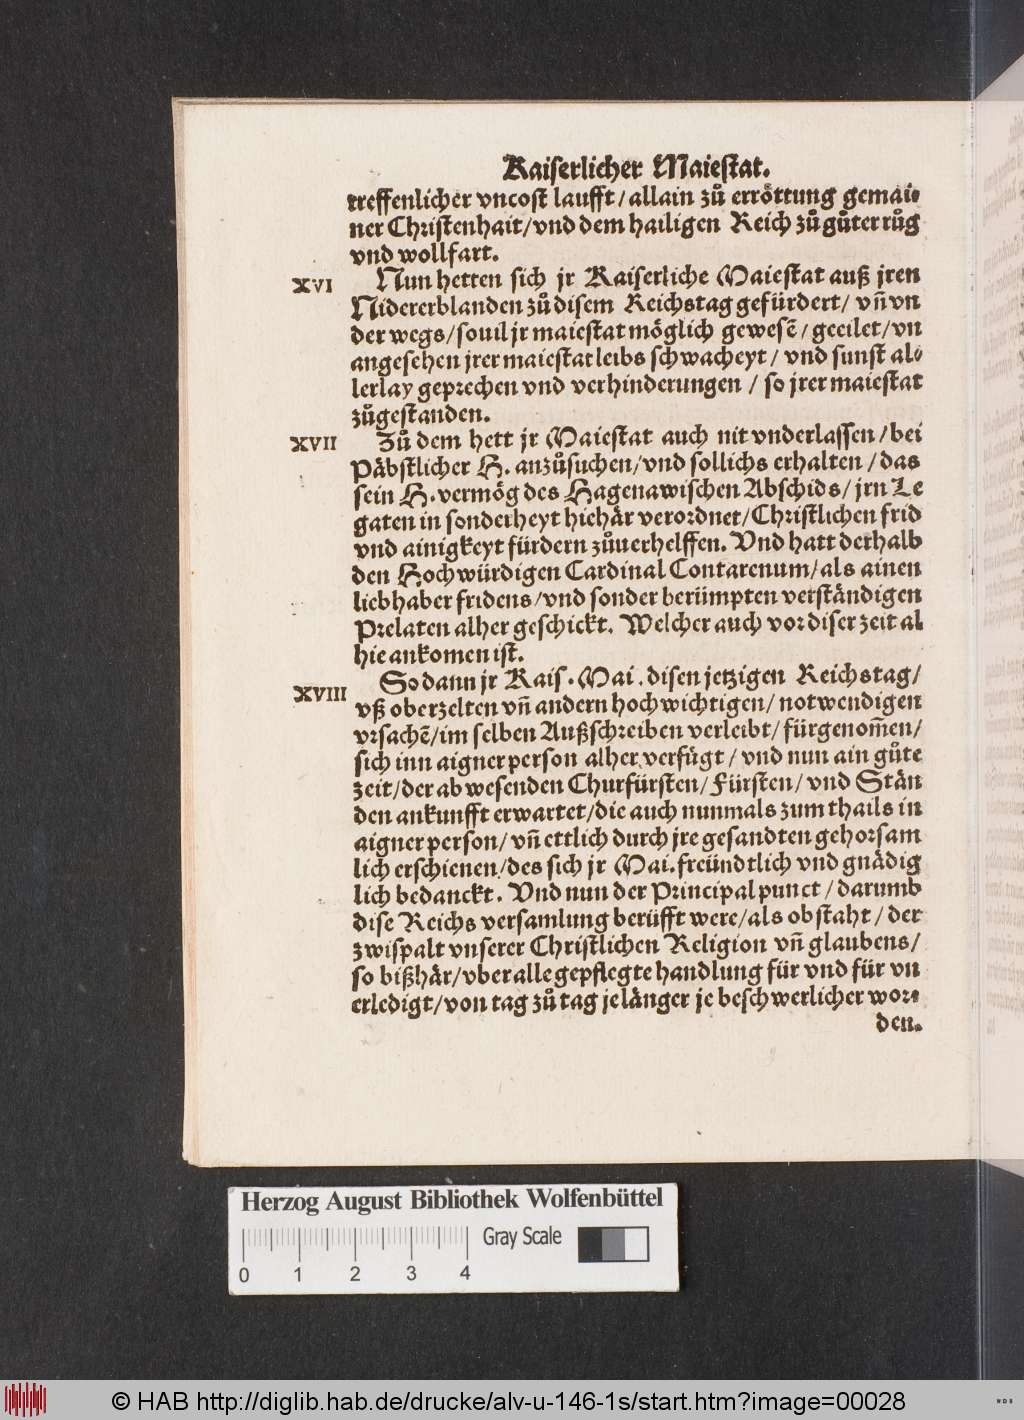 Kaiserlicher Maiestat.
treffenlicher vncost laufft/allain zů erröttung gemai-
ner Christenhait/vnd dem hailigen Reich zů gůter růg
vnd wollfart.
XVI Nun hetten sich jr Kaiserliche Maiestat auß jren
Nidererblanden zů disem Reichstag gefürdert/ vn̄ vn
der wegs/souil jr maiestat möglich gewesē/geeilet/vn
angesehen jrer maiestat leibs schwacheyt/ vnd sunst al-
lerlay geprechen vnd verhinderungen / so jrer maiestat
zůgestanden.
XVII Zů dem hett jr Maiestat auch nit vnderlassen/bei
Päbstlicher H. anzůsuchen/vnd sollichs erhalten /das
sein H. vermög des Hagenawischen Abschids/ jrn Le
gaten in sonderheyt hiehär verordnet/Christlichen frid
vnd ainigkeyt fürdern zůuerhelffen. Vnd hatt derhalb
den Hochwürdigen Cardinal Contarenum/als ainen
liebhaber fridens/vnd sonder berümpten verständigen
Prelaten alher geschickt. Welcher auch vor diser zeit al
hie ankomen ist.
XVIII So dann jr Kais. Mai. disen jetzigen Reichstag/
vß oberzelten vn̄ andern hochwichtigen/ notwendigen
vrsachē/im selben Außschreiben verleibt/fürgenom̄en/
sich inn aigner person alher verfügt / vnd nun ain gůte
zeit/der abwesenden Churfürsten/ Fürsten/ vnd Stän
den ankunfft erwartet/die auch nunmals zum thails in
aigner person/ vn̄ ettlich durch jre gesandten gehorsam
lich erschienen/des sich jr Mai. freündtlich vnd gnädig
lich bedanckt. Vnd nun der Principal punct / darumb
dise Reichs versamlung berüfft were/als obstaht/ der
zwispalt vnserer Christlichen Religion vn̄ glaubens/
so bißhär/vber alle gepflegte handlung für vnd für vn
erledigt/von tag zů tag je länger je beschwerlicher wor-
den.
Herzog August Bibliothek Wolfenbüttel
Gray Scale
0 1 2 3 4
© HAB http://diglib.hab.de/drucke/alv-u-146-1s/start.htm?image=00028